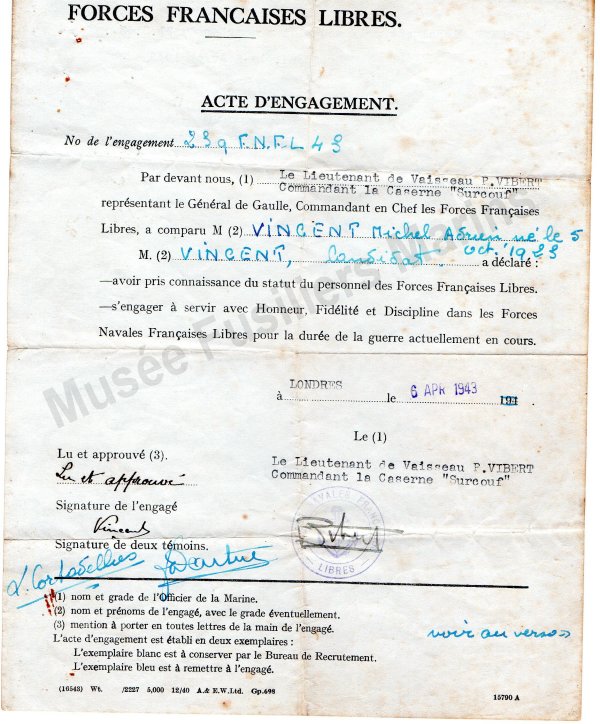 FORCES FRANCAISES LIBRES.
ACTE D'ENGAGEMENT.
No de l'engagement 239 F.N.F.L 43
Par devant nous, (1) Le Lieutenant de Vaisseau P.VIBERT
Commandant la Caserne "Surcouf"
représentant le Général de Gaulle, Commandant en Chef les Forces Françaises
Libres, a comparu M (2) VINCENT Michel Adrien né le 5
oct. 1923
M. (2) VINCENT, Candidat. a déclaré :
—avoir pris connaissance du statut du personnel des Forces Françaises Libres.
—s'engager à servir avec Honneur, Fidélité et Discipline dans les Forces
Navales Françaises Libres pour la durée de la guerre actuellement en cours.
Musée Fusiliers Marins
LONDRES
à le 6 APR 1943 194
Le (1)
Lu et approuvé (3).
Le Lieutenant de Vaisseau P.VIBERT
Commandant la Caserne "Surcouf"
Lu et approuvé
Signature de l'engagé
Vincent
NAVALES FRANÇAISES
LIBRES
Vibert
Signature de deux témoins.
(1) nom et grade de l'Officier de la Marine.
(2) nom et prénoms de l'engagé, avec le grade éventuellement.
(3) mention à porter en toutes lettres de la main de l'engagé.
L'acte d'engagement est établi en deux exemplaires :
L'exemplaire blanc est à conserver par le Bureau de Recrutement.
L'exemplaire bleu est à remettre à l'engagé.
voir au verso
(16543) Wt. /2227 5,000 12/40 A.& E.W.Ltd. Gp.698
15790 A